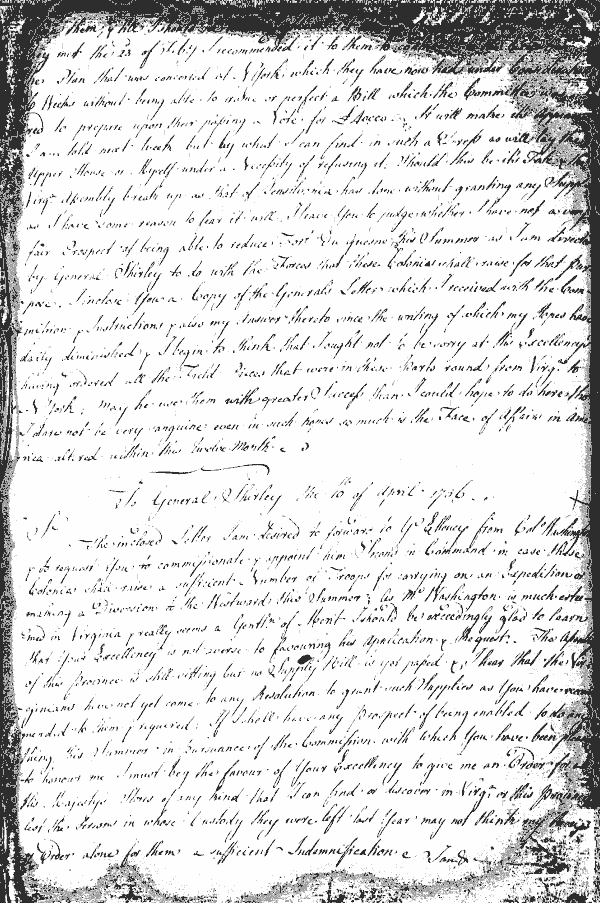 them, & the
met the 23 of Feby I recommended it to them to
the Plan that was concerted at N York which they have now had under
6 Weeks without being able to frame or perfect a Bill which the Committee
red to prepare upon their passing a Vote for
I am told next week but by what I can find in such a Dress as will lay the
Upper House or Myself under a Necessity of refusing it. Should this be its Fate & the
Virga Assembly break up as that of Pensilvania has done without granting any Supplies
as I have some reason to fear it will I leave You to judge whether I have not a very
fair Prospect of being able to reduce Fort Du quesne this Summer as I am directed
by General Shirley to do with the Forces that these Colonies shall raise for that Pur
pose. I inclose You a Copy of the General's Letter which I received with the Com
mission & Instructions & also my Answer thereto since the writing of which my Hopes have
daily diminished & I begin to think that I ought not to be sorry at his Excellency's
having ordered all the Field Pieces that were in these Parts round from Virga to
N York; may he use them with greater Success than I could hope to do here tho
I dare not be very sanguine even in such hopes so much is the Face of Affairs in Ame
rica altered within this twelve Month.
To General Shirley the 10th of April 1756.
Sr
The inclosed Letter I am desired to forward to Yr Excellency from Colo Washington
& to request You to commissionate & appoint him Second in Command in case these
Colonies shall raise a sufficient Number of Troops for carrying on an Expedition or
making a Diversion to the Westward this Summer; As Mr Washington is much estee
med in Virginia & really seems a Gentln of Merit I should be exceedingly glad to learn
that Your Excellency is not averse to favouring his Application & Request. The Assembly
of this Province is still sitting but no Supply Bill is yet passed & I hear that the Vir
ginians have not yet come to any Resolution to grant such Supplies as You have recom
mended to them & required; If I shall have any Prospect of being enabled to do any
thing this Summer in pursuance of the Commission with which You have been pleased
to honour me I must beg the favour of Your Excellency to give me an Order for all
His Majesty's Stores of any kind that I can find or discover in Virga or this Province
lest the Persons in whose Custody they were left last Year may not think my
or Order alone for them a sufficient Indemnification I am &c